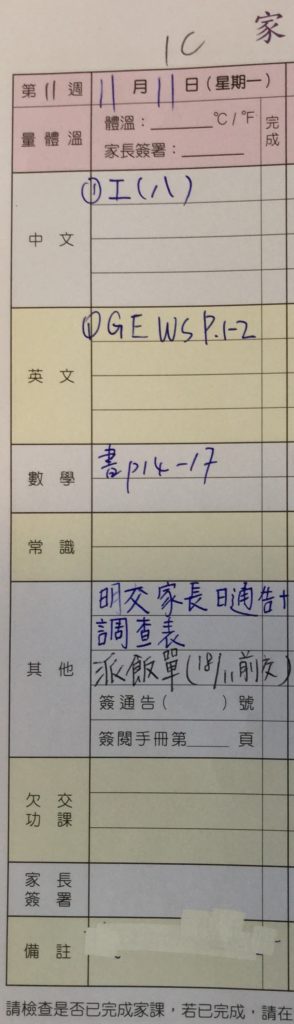 1C
家
第 11 週
11 月 11 日 (星期一)
量體溫
體溫：______ °C / °F
家長簽署：______
完成
中文
① 工(八)
英文
① GE WS P.1-2
數學
書p14-17
常識
其他
明交家長日通告+
調查表
派飯單(18/11前交)
簽通告 ( ) 號
簽閱手冊第____ 頁
欠交功課
家長簽署
備註
請檢查是否已完成家課，若已完成，請在